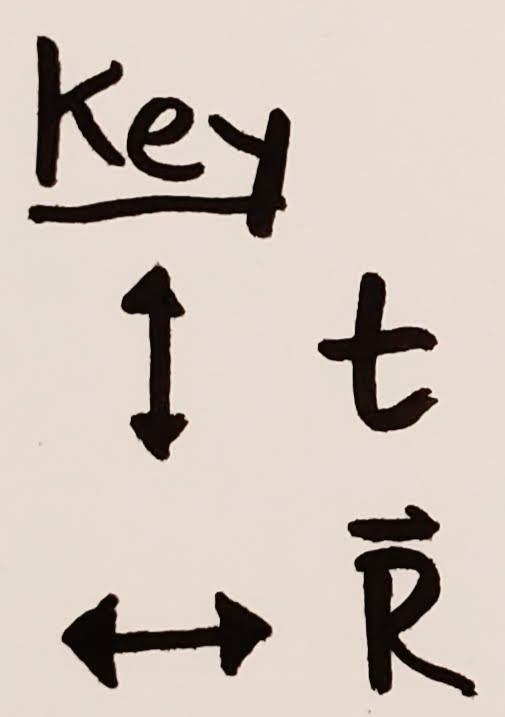 Key
↕ t
↔ R⃗